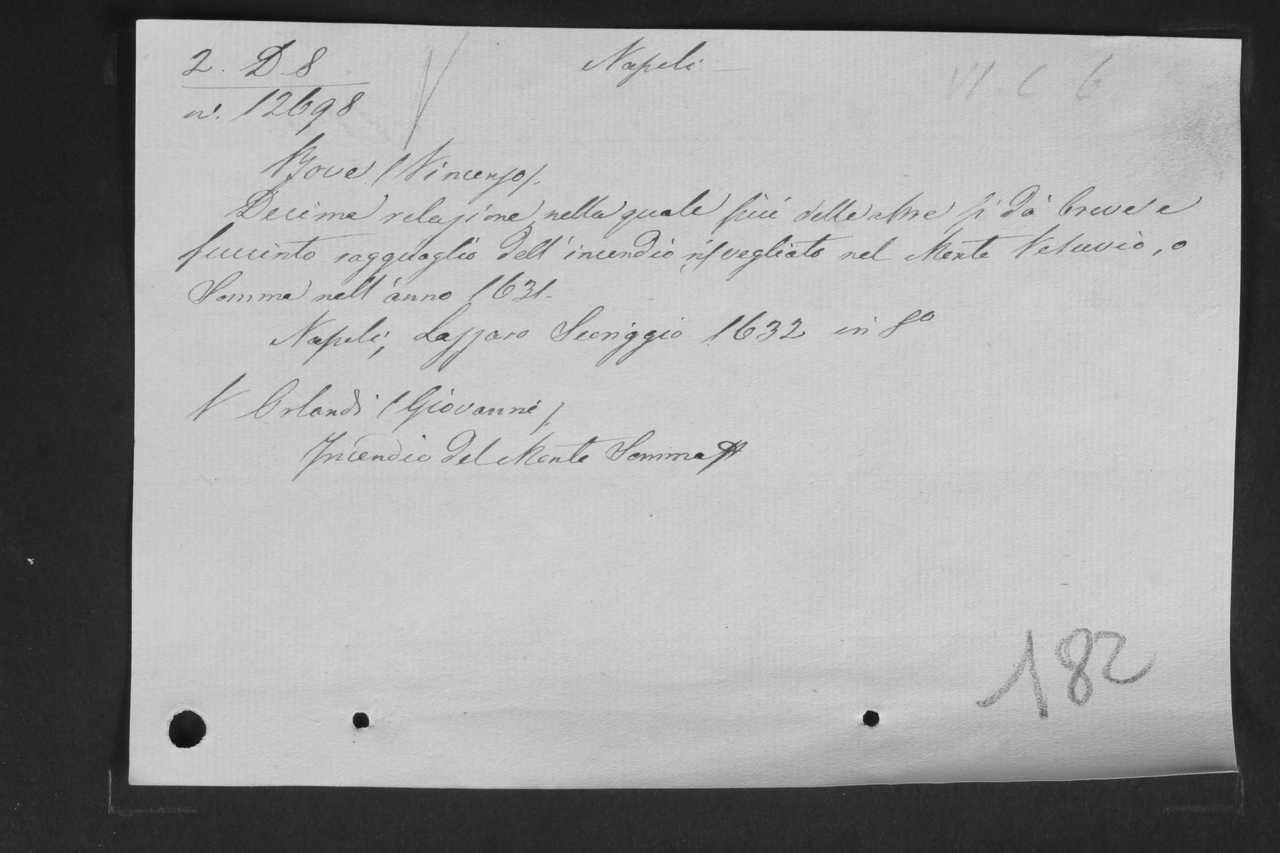 2. D 8
Napoli
VI C 6
n°. 12698
Bove (Vincenzo).
Decima relazione nella quale più delle altre si dà breve e
succinto ragguaglio dell'incendio risvegliato nel Monte Vesuvio, o
Somma nell'anno 1631.
Napoli, Lazzaro Scoriggio 1632 in 8°
V Orlandi (Giovanni)
Incendio del Monte Somma
182